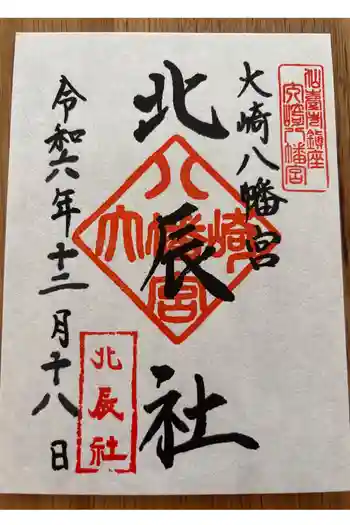 仙臺市鎮座
大崎八幡宮
大崎八幡宮
北辰社
八
大崎八幡宮
北辰社
令和六年十二月十八日